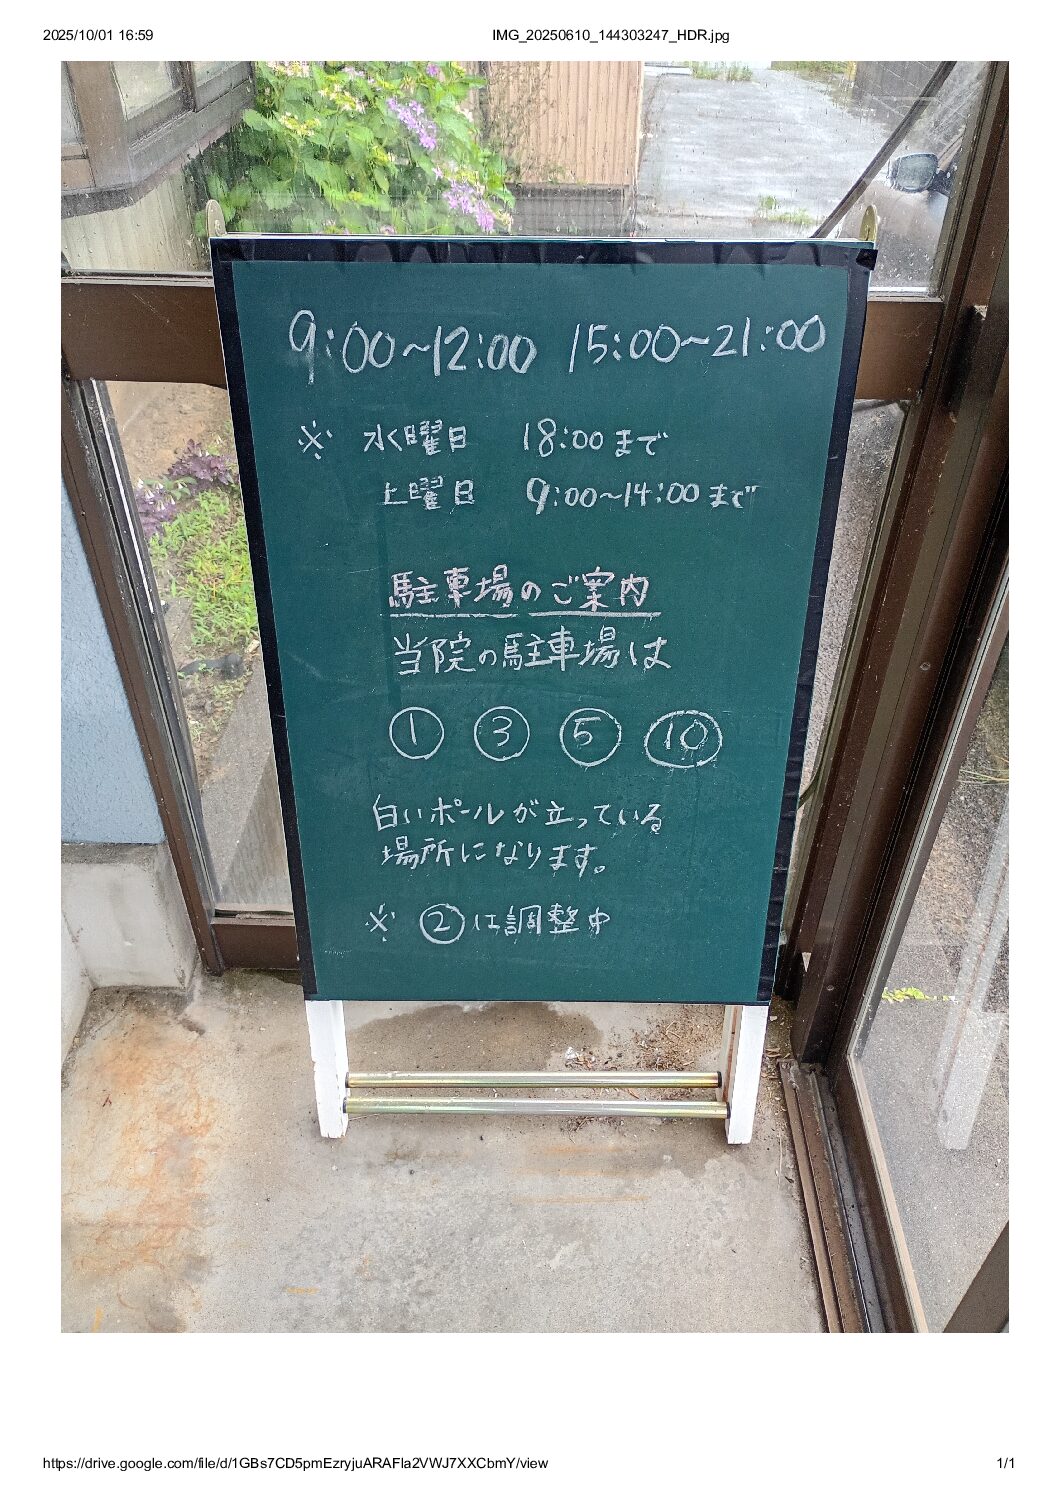 2025/10/01 16:59 IMG_20250610_144303247_HDR.jpg
9:00~12:00 15:00~21:00
※ 水曜日 18:00まで
土曜日 9:00~14:00まで
駐車場のご案内
当院の駐車場は
① ③ ⑤ ⑩
白いポールが立っている
場所になります。
※ ②は調整中
https://drive.google.com/file/d/1GBs7CD5pmEzryjuARAFla2VWJ7XXCbmY/view 1/1